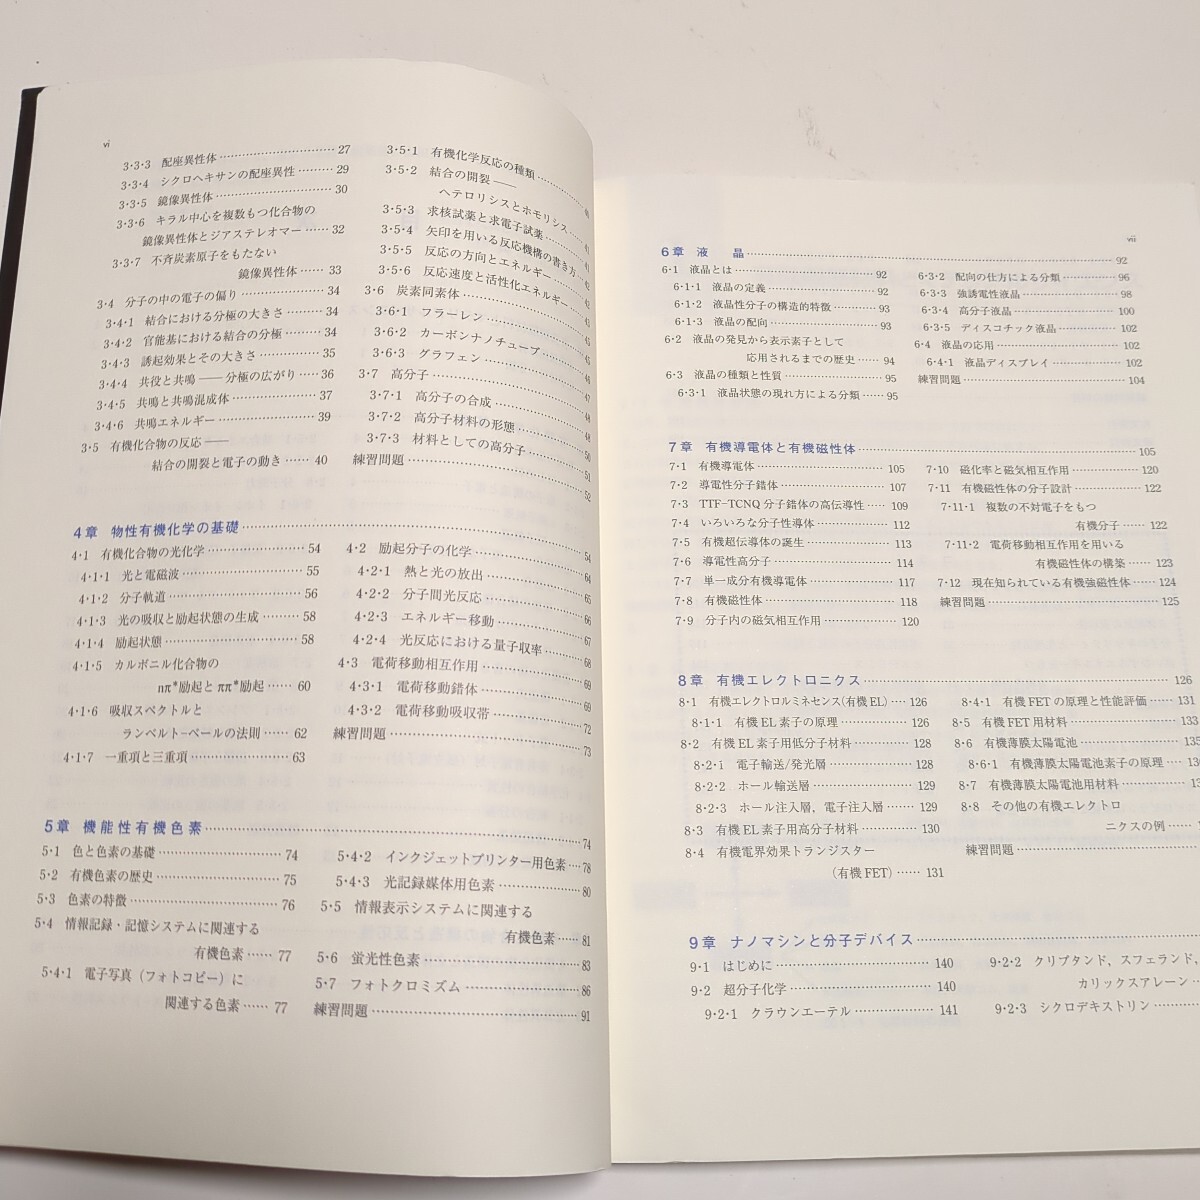 vi
3・3・3 配座異性体 27
3・3・4 シクロヘキサンの配座異性 29
3・3・5 鏡像異性体 30
3・3・6 キラル中心を複数もつ化合物の
鏡像異性体とジアステレオマー 32
3・3・7 不斉炭素原子をもたない
鏡像異性体 33
3・4 分子の中の電子の偏り 34
3・4・1 結合における分極の大きさ 34
3・4・2 官能基における結合の分極 34
3・4・3 誘起効果とその大きさ 35
3・4・4 共役と共鳴——分極の広がり 36
3・4・5 共鳴と共鳴混成体 37
3・4・6 共鳴エネルギー 39
3・5 有機化合物の反応——
結合の開裂と電子の動き 40
3・5・1 有機化学反応の種類 40
3・5・2 結合の開裂——
ヘテロリシスとホモリシス 41
3・5・3 求核試薬と求電子試薬 41
3・5・4 矢印を用いる反応機構の書き方 42
3・5・5 反応の方向とエネルギー 42
3・5・6 反応速度と活性化エネルギー
3・6 炭素同素体
3・6・1 フラーレン 45
3・6・2 カーボンナノチューブ
3・6・3 グラフェン 46
3・7 高分子 47
3・7・1 高分子の合成 48
3・7・2 高分子材料の形態 48
3・7・3 材料としての高分子 50
練習問題 51
52
4章 物性有機化学の基礎 54
4・1 有機化合物の光化学 54
4・1・1 光と電磁波 55
4・1・2 分子軌道 56
4・1・3 光の吸収と励起状態の生成 58
4・1・4 励起状態 58
4・1・5 カルボニル化合物の
nπ*励起とππ*励起 60
4・1・6 吸収スペクトルと
ランベルト-ベールの法則 62
4・1・7 一重項と三重項 63
4・2 励起分子の化学 64
4・2・1 熱と光の放出 65
4・2・2 分子間光反応 66
4・2・3 エネルギー移動 67
4・2・4 光反応における量子収率 68
4・3 電荷移動相互作用 69
4・3・1 電荷移動錯体 69
4・3・2 電荷移動吸収帯 72
練習問題 73
5章 機能性有機色素 74
5・1 色と色素の基礎 74
5・2 有機色素の歴史 75
5・3 色素の特徴 76
5・4 情報記録・記憶システムに関連する
有機色素 77
5・4・1 電子写真（フォトコピー）に
関連する色素 77
5・4・2 インクジェットプリンター用色素 78
5・4・3 光記録媒体用色素 80
5・5 情報表示システムに関連する
有機色素 81
5・6 蛍光性色素 83
5・7 フォトクロミズム 86
練習問題 91
vii
6章 液晶 92
6・1 液晶とは 92
6・1・1 液晶の定義 92
6・1・2 液晶性分子の構造的特徴 93
6・1・3 液晶の配向 93
6・2 液晶の発見から表示素子として
応用されるまでの歴史 94
6・3 液晶の種類と性質 95
6・3・1 液晶状態の現れ方による分類 95
6・3・2 配向の仕方による分類 96
6・3・3 強誘電性液晶 98
6・3・4 高分子液晶 100
6・3・5 ディスコチック液晶 102
6・4 液晶の応用 102
6・4・1 液晶ディスプレイ 102
練習問題 104
7章 有機導電体と有機磁性体 105
7・1 有機導電体 105
7・2 導電性分子錯体 107
7・3 TTF-TCNQ 分子錯体の高伝導性 109
7・4 いろいろな分子性導体 112
7・5 有機超伝導体の誕生 113
7・6 導電性高分子 114
7・7 単一成分有機導電体 117
7・8 有機磁性体 118
7・9 分子内の磁気相互作用 120
7・10 磁化率と磁気相互作用 120
7・11 有機磁性体の分子設計 122
7・11・1 複数の不対電子をもつ
有機分子 122
7・11・2 電荷移動相互作用を用いる
有機磁性体の構築 123
7・12 現在知られている有機強磁性体 124
練習問題 125
8章 有機エレクトロニクス 126
8・1 有機エレクトロルミネセンス（有機EL） 126
8・1・1 有機EL素子の原理 126
8・2 有機EL素子用低分子材料 128
8・2・1 電子輸送/発光層 128
8・2・2 ホール輸送層 129
8・2・3 ホール注入層，電子注入層 129
8・3 有機EL素子用高分子材料 130
8・4 有機電界効果トランジスター
（有機FET） 131
8・4・1 有機FETの原理と性能評価 131
8・5 有機FET用材料 133
8・6 有機薄膜太陽電池 135
8・6・1 有機薄膜太陽電池素子の原理
8・7 有機薄膜太陽電池用材料
8・8 その他の有機エレクトロ
ニクスの例
練習問題
9章 ナノマシンと分子デバイス
9・1 はじめに 140
9・2 超分子化学 140
9・2・1 クラウンエーテル 141
9・2・2 クリプタンド，スフェランド，
カリックスアレーン
9・2・3 シクロデキストリン